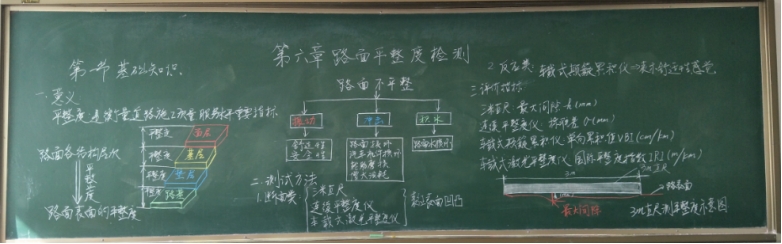 第六章 路面平整度检测
第一节 基础知识
一.意义
平整度是衡量道路施工质量服务水平重要指标
路面各结构层次
平整度
路面表面的平整度
平整度 面层
平整度 基层
平整度 垫层
平整度 路基
路面不平整
振动
冲击
积水
舒适性
安全性
路面损坏
路面水损坏
二.测试方法
1.断面类
三米直尺
连续平整度仪
车载式激光平整度仪
表面凹凸
2.反应类:车载式颠簸累积仪
舒适性感觉
三.评价指标:
三米直尺 最大间隙 h(mm)
连续平整度仪 标准差 σ(mm)
车载式颠簸累积仪 单向累积值VBI(cm/km)
车载式激光平整度仪 国际平整度指数IRI(m/km)
3m
3m直尺
路表面
最大间隙
3m直尺测平整度示意图